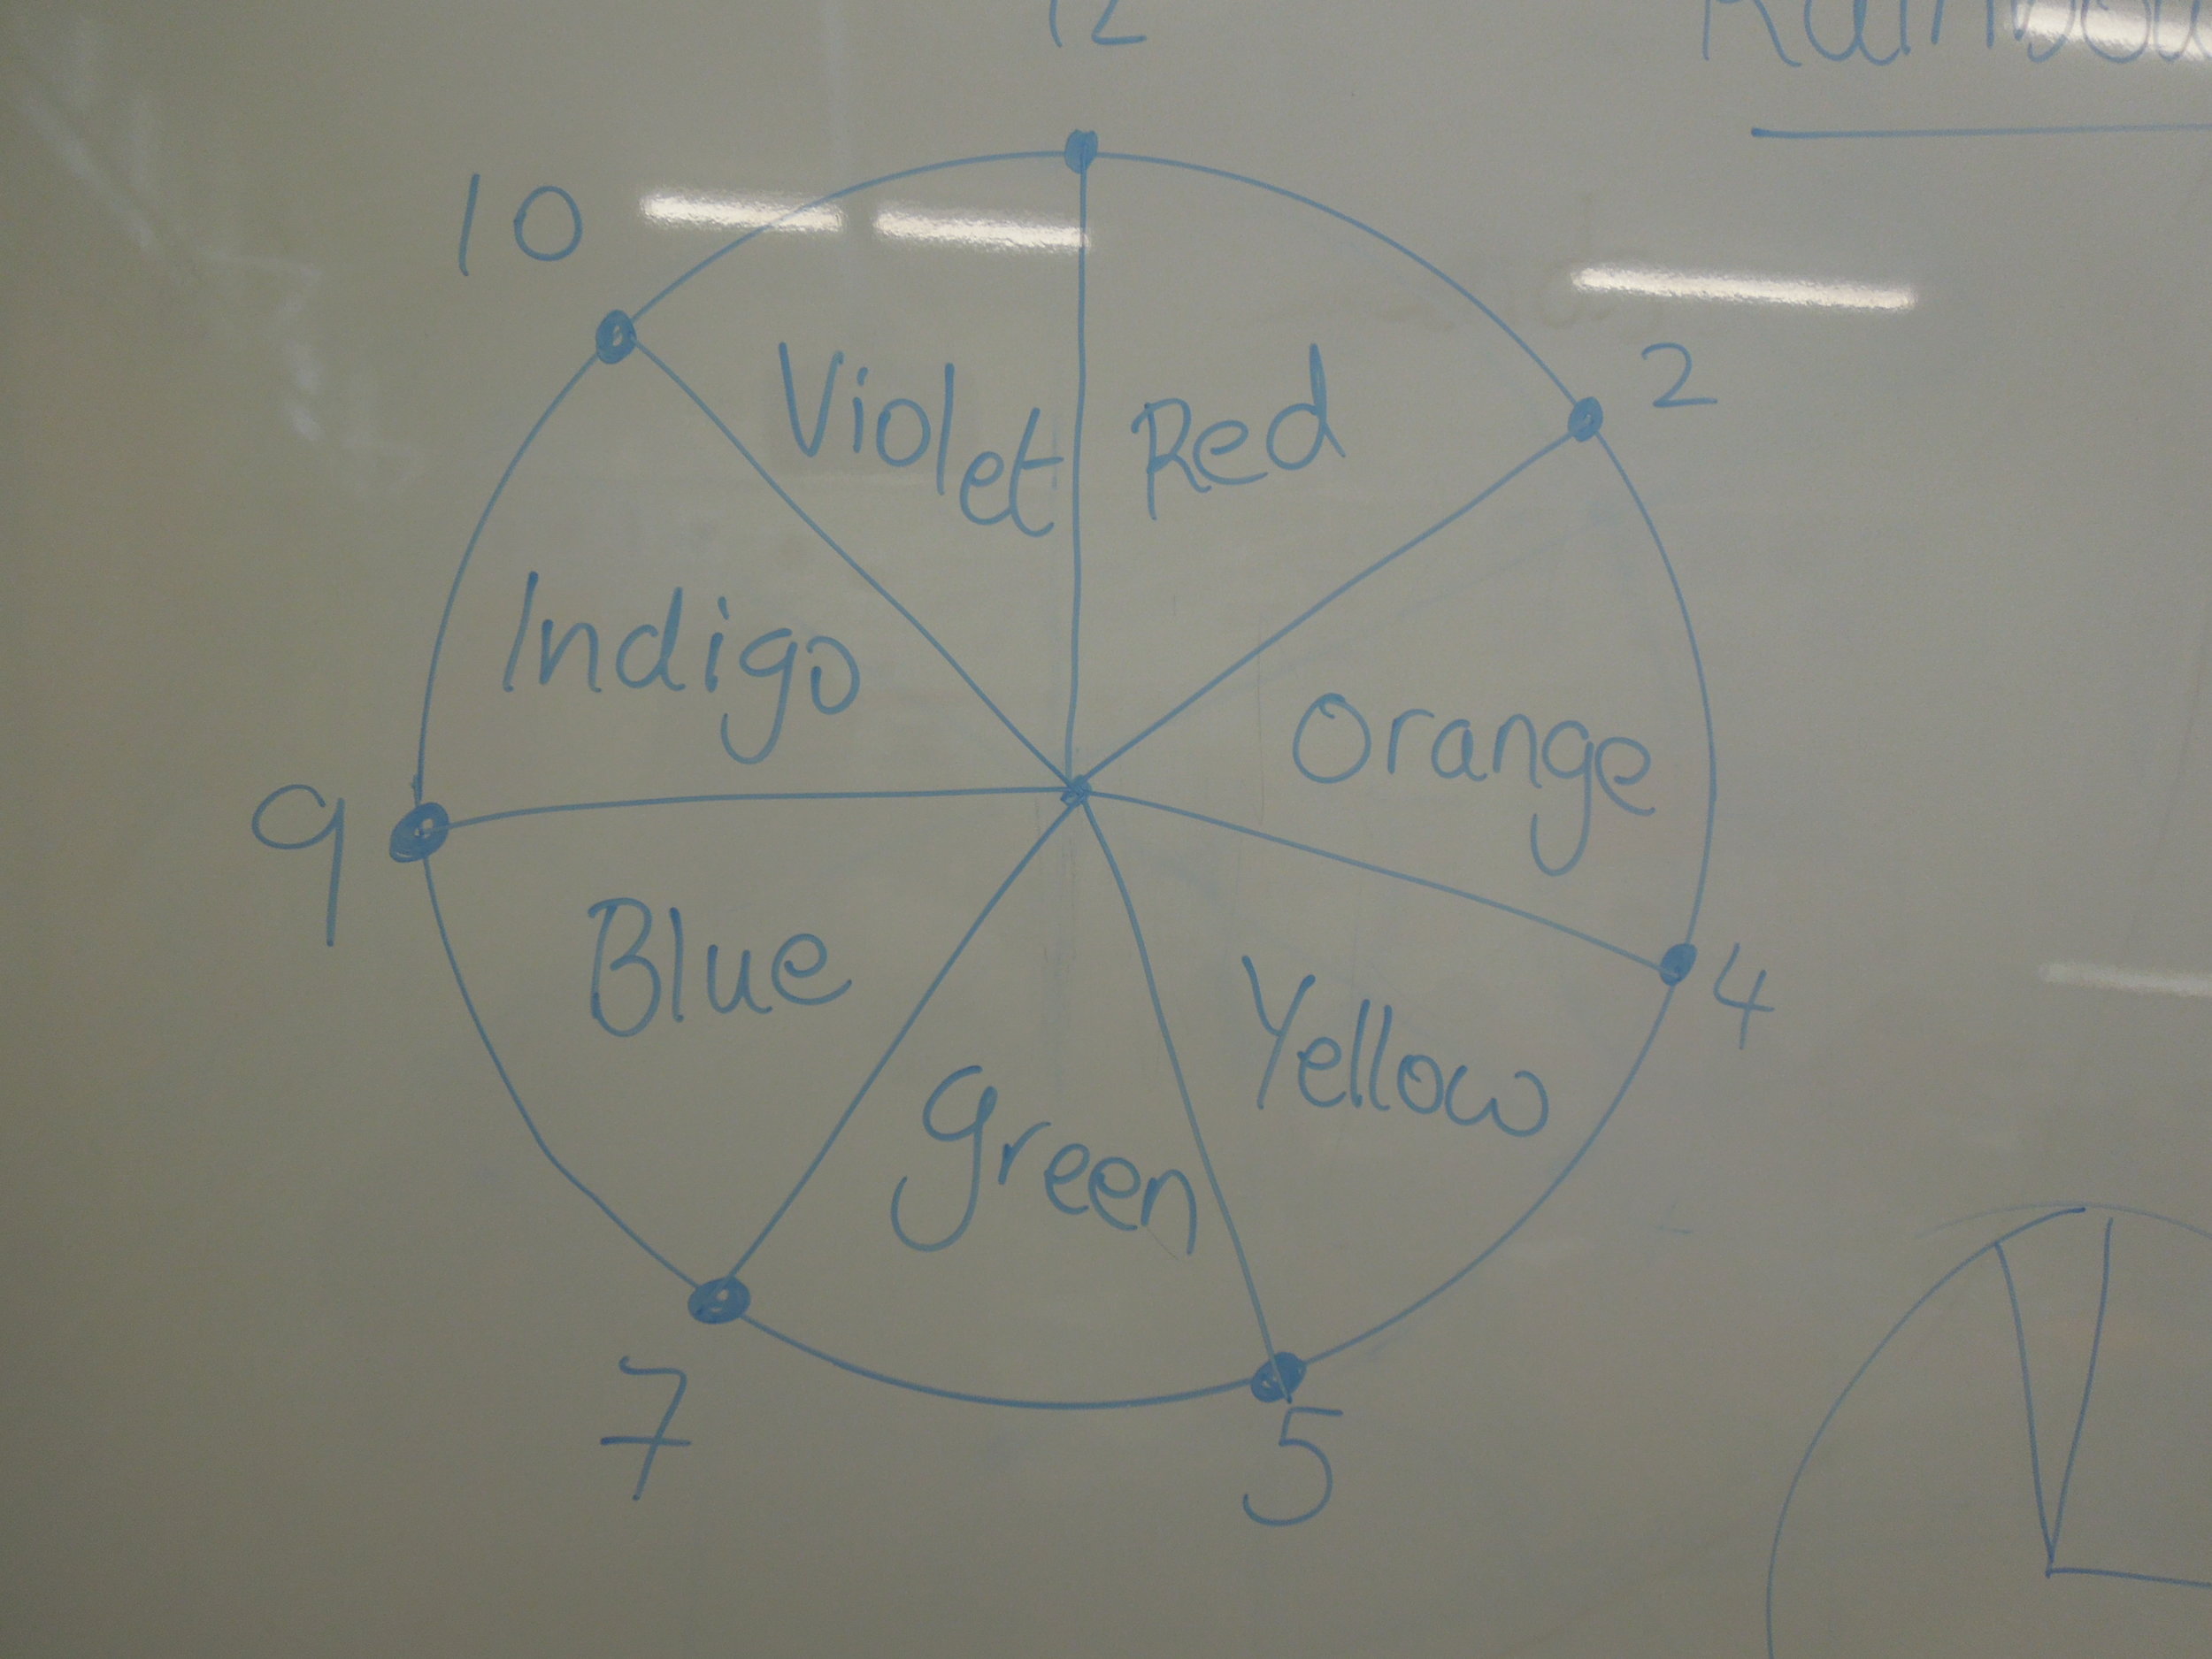 12
10
2
Violet
Red
Indigo
Orange
9
4
Blue
Yellow
Green
7
5